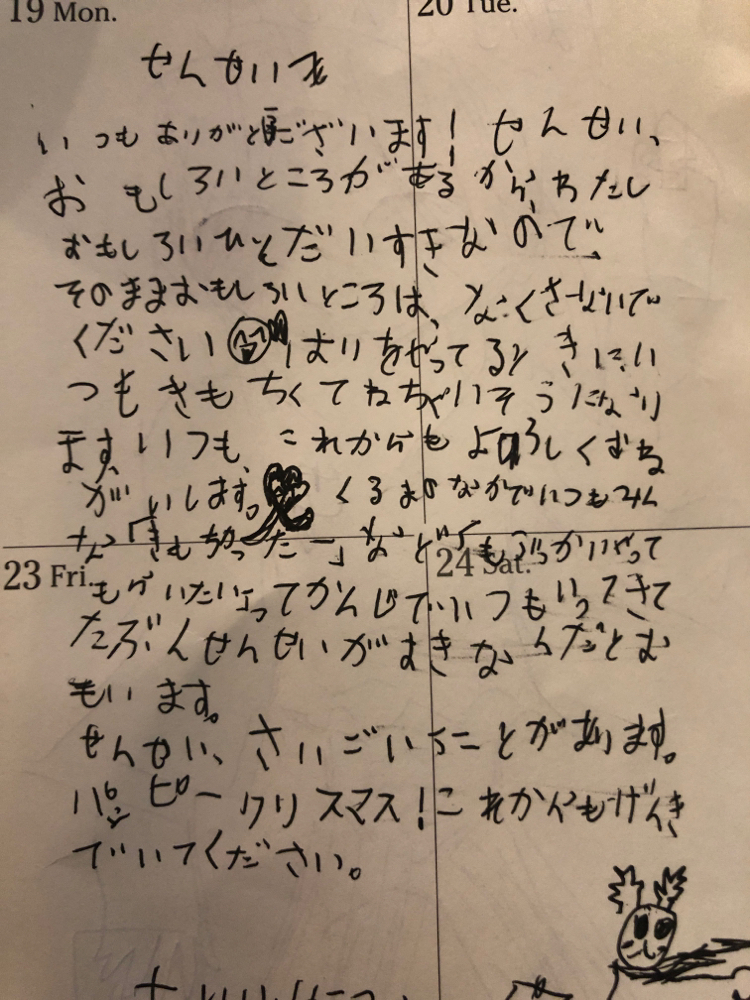 19 Mon.
20 Tue.
せんせいへ
いつもありがとございます! せんせい、
おもしろいところがあるから、わたし
おもしろいひとだいすきなので、
そのままおもしろいところは、なくさないで
ください はりをやってると きにい
つもきもちくてねちゃいそうになり
ます、いつも、これからもよろしくおね
がいします。 くるまのなかでいつもみん
な「きも
23 Fri.
24 Sat.
もケいたいってかんじでいいつもいってきて
たぶんせんせいがすきなんだとお
もいます。
せんせい、さいごいうことがあります。
ハピークリスマス!これからもげんき
でいてください。